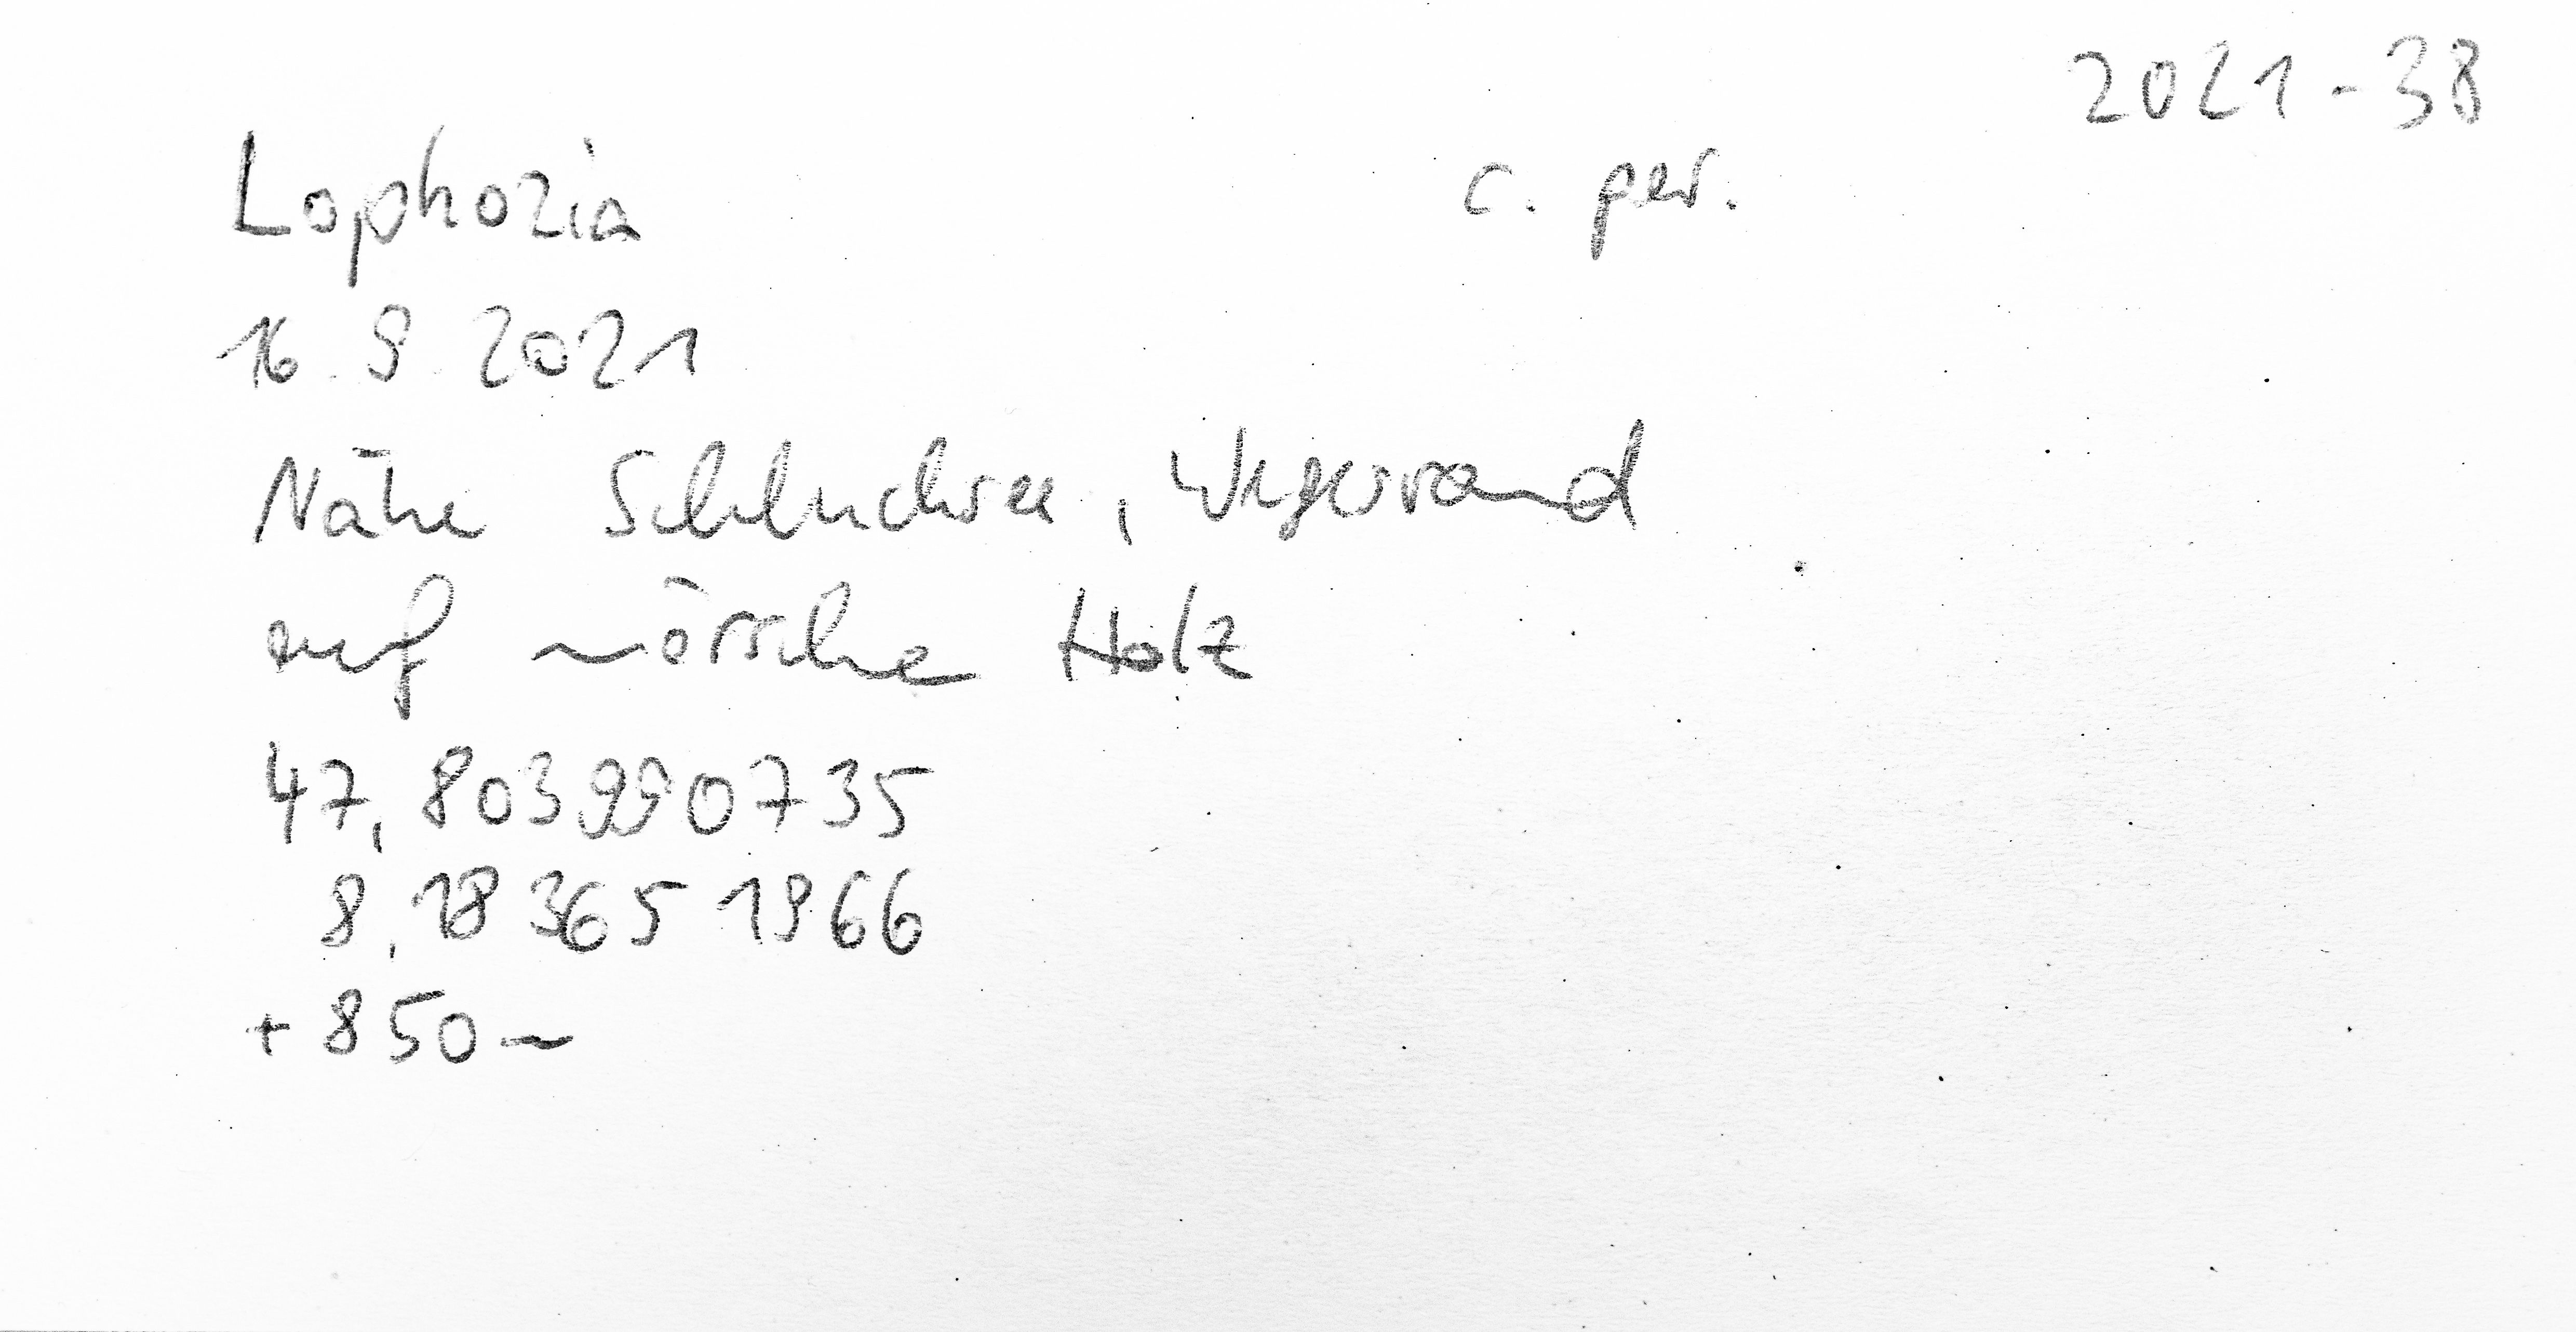 2021-38
Lophozia c. per.
16.9.2021
Nähe Schluchsee, Wegesrand
auf mörsche Holz
47,803990735
8,183651966
+850m